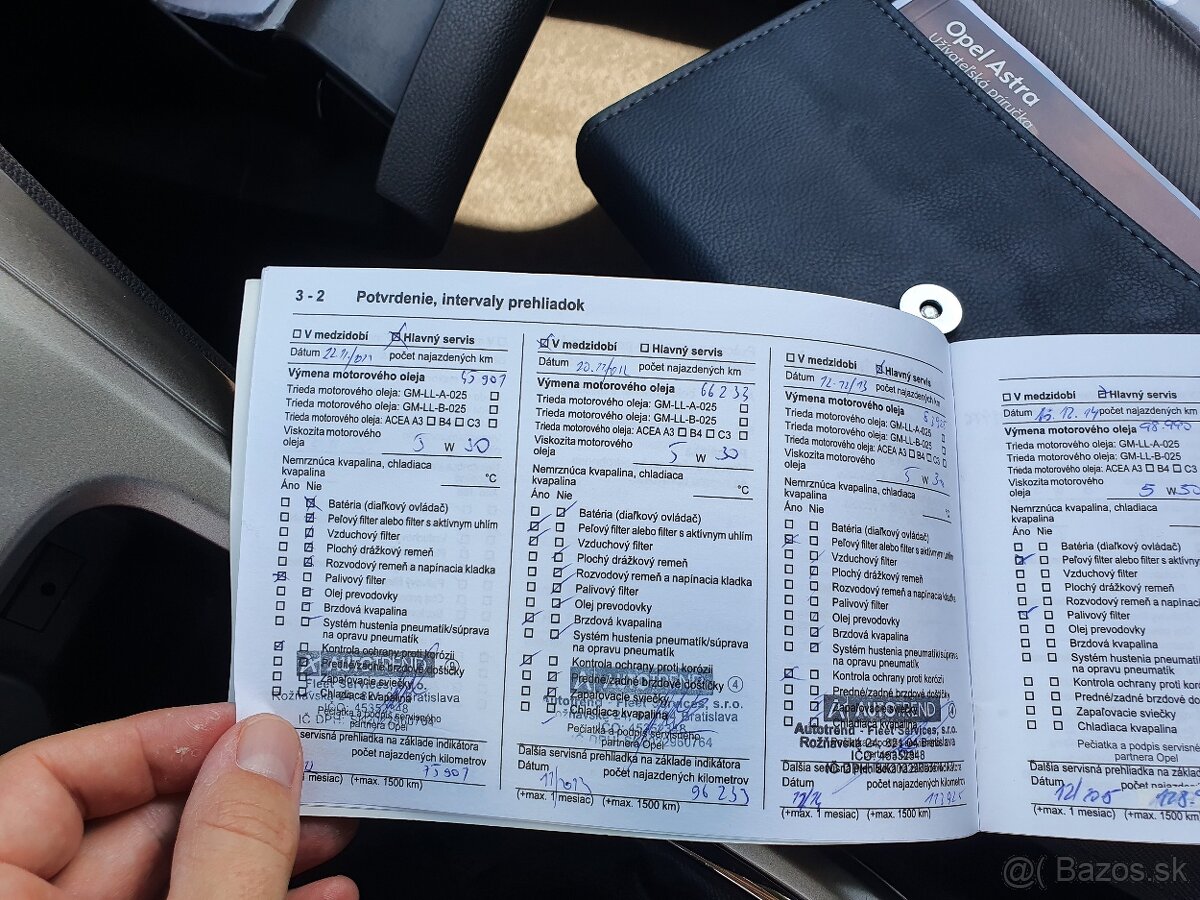 Opel Astra
Užívateľská príručka
3 - 2 Potvrdenie, intervaly prehliadok
V medzidobí Hlavný servis
Dátum počet najazdených km
Výmena motorového oleja 45 901
Trieda motorového oleja: GM-LL-A-025
Trieda motorového oleja: GM-LL-B-025
Trieda motorového oleja: ACEA A3 B4 C3
Viskozita motorového
oleja 5 W 30
Nemrznúca kvapalina, chladiaca
kvapalina °C
Áno Nie
Batéria (diaľkový ovládač)
Peľový filter alebo filter s aktívnym uhlím
Vzduchový filter
Plochý drážkový remeň
Rozvodový remeň a napínacia kladka
Palivový filter
Olej prevodovky
Brzdová kvapalina
Systém hustenia pneumatík/súprava
na opravu pneumatík
Kontrola ochrany proti korózii
Predné/zadné brzdové doštičky
Zapaľovacie sviečky
Chladiaca kvapalina
Pečiatka a podpis servisného
partnera Opel
servisná prehliadka na základe indikátora
počet najazdených kilometrov
75 901
mesiac) (+max. 1500 km)
V medzidobí Hlavný servis
Dátum počet najazdených km
Výmena motorového oleja 66 233
Trieda motorového oleja: GM-LL-A-025
Trieda motorového oleja: GM-LL-B-025
Trieda motorového oleja: ACEA A3 B4 C3
Viskozita motorového
oleja 5 W 30
Nemrznúca kvapalina, chladiaca
kvapalina °C
Áno Nie
Batéria (diaľkový ovládač)
Peľový filter alebo filter s aktívnym uhlím
Vzduchový filter
Plochý drážkový remeň
Rozvodový remeň a napínacia kladka
Palivový filter
Olej prevodovky
Brzdová kvapalina
Systém hustenia pneumatík/súprava
na opravu pneumatík
Kontrola ochrany proti korózii
Predné/zadné brzdové doštičky
Zapaľovacie sviečky
Chladiaca kvapalina
Pečiatka a podpis servisného
partnera Opel
Ďalšia servisná prehliadka na základe indikátora
Dátum počet najazdených kilometrov
96 233
(+max. 1 mesiac) (+max. 1500 km)
V medzidobí Hlavný servis
Dátum 12.12/13 počet najazdených km
Výmena motorového oleja
Trieda motorového oleja: GM-LL-A-025
Trieda motorového oleja: GM-LL-B-025
Trieda motorového oleja: ACEA A3 B4 C3
Viskozita motorového
oleja 5 W 30
Nemrznúca kvapalina, chladiaca
kvapalina
Áno Nie
Batéria (diaľkový ovládač)
Peľový filter alebo filter s aktívnym uhlím
Vzduchový filter
Plochý drážkový remeň
Rozvodový remeň a napínacia
Palivový filter
Olej prevodovky
Brzdová kvapalina
Systém hustenia pneumatík/súprava
na opravu pneumatík
Kontrola ochrany proti korózii
Predné/zadné brzdové doštičky
Zapaľovacie sviečky
AUTOTREND
Autotrend - Fleet Services, s.r.o.
Rožňavská 24, 821 04 Bratislava
Dátum počet najazdených kilometrov
12/14 113 925
(+max. 1 mesiac) (+max. 1500 km)
V medzidobí Hlavný servis
Dátum 12.14 počet najazdených km
Výmena motorového oleja 98.990
Trieda motorového oleja: GM-LL-A-025
Trieda motorového oleja: GM-LL-B-025
Trieda motorového oleja: ACEA A3 B4 C3
Viskozita motorového
oleja 5 W 50
Nemrznúca kvapalina, chladiaca
kvapalina
Áno Nie
Batéria (diaľkový ovládač)
Peľový filter alebo filter s aktívnym
Vzduchový filter
Plochý drážkový remeň
Rozvodový remeň a napínacia
Palivový filter
Olej prevodovky
Brzdová kvapalina
Systém hustenia pneumatík
na opravu pneumatík
Kontrola ochrany proti
Predné/zadné brzdové
Zapaľovacie sviečky
Chladiaca kvapalina
Pečiatka a podpis servisného
partnera Opel
Ďalšia servisná prehliadka na základe
Dátum počet najazdených
(+max. 1 mesiac) (+max. 1500
@( Bazos.sk